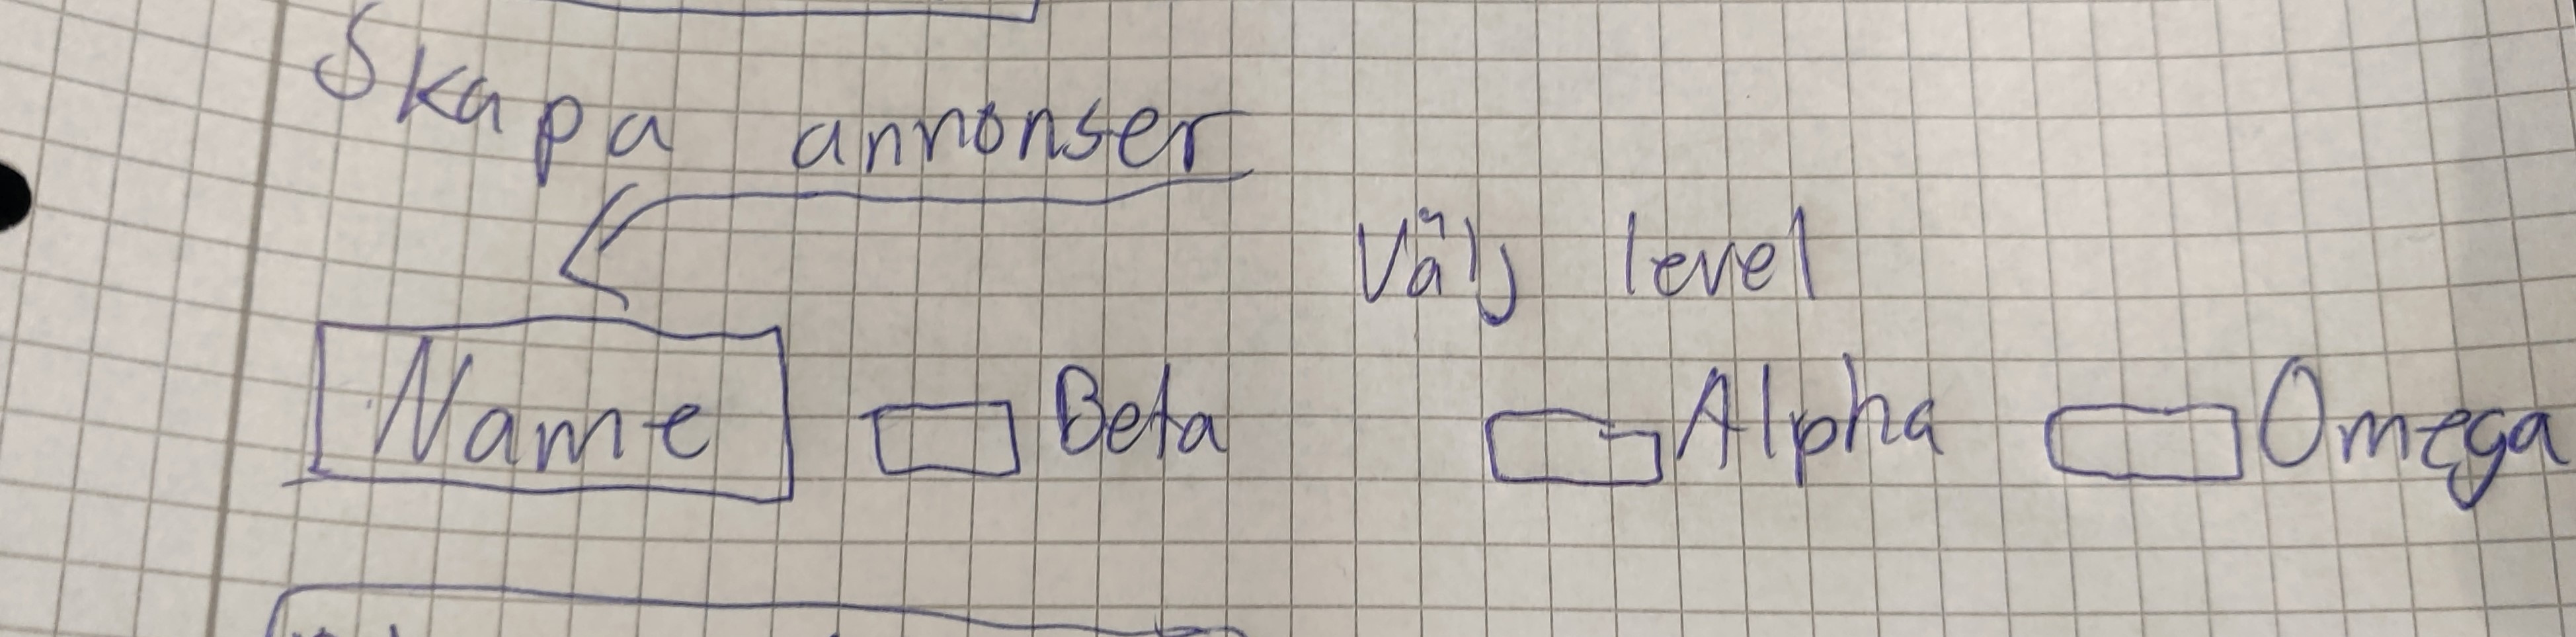 Skapa annonser
Välj level
Name Beta Alpha Omega